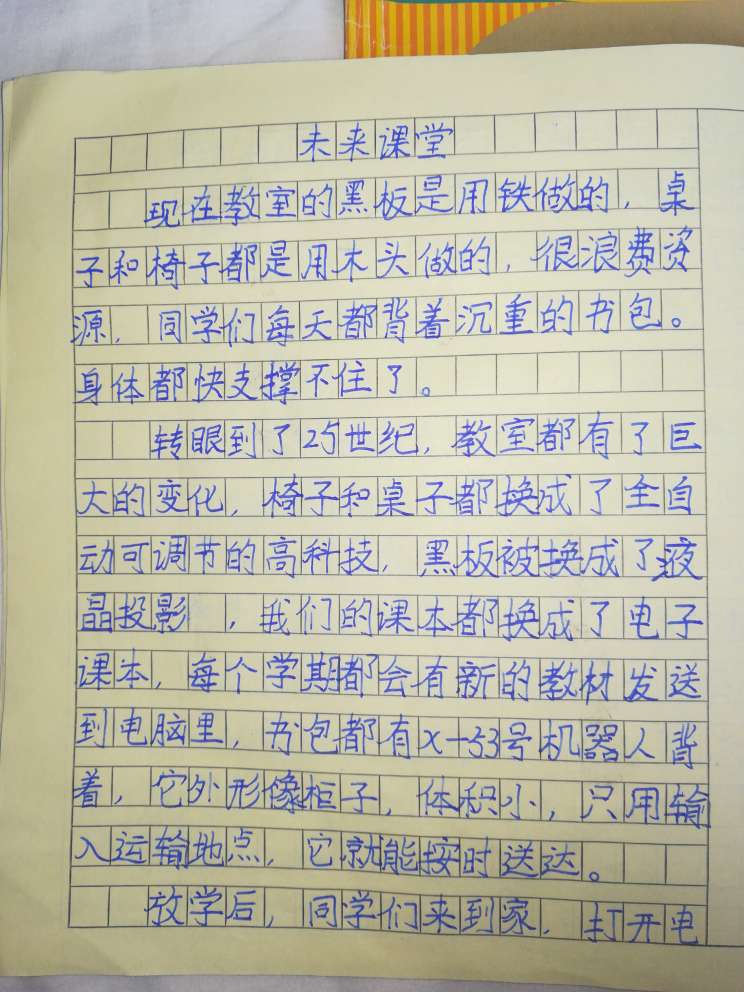 未来课堂
现在教室的黑板是用铁做的，桌
子和椅子都是用木头做的，很浪费资
源，同学们每天都背着沉重的书包。
身体都快支撑不住了。
转眼到了25世纪，教室都有了巨
大的变化，椅子和桌子都换成了全自
动可调节的高科技，黑板被换成了液
晶投影，我们的课本都换成了电子
课本，每个学期都会有新的教材发送
到电脑里，书包都有X-53号机器人背
着，它外形像柜子，体积小，只用输
入运输地点，它就能按时送达。
放学后，同学们来到家，打开电